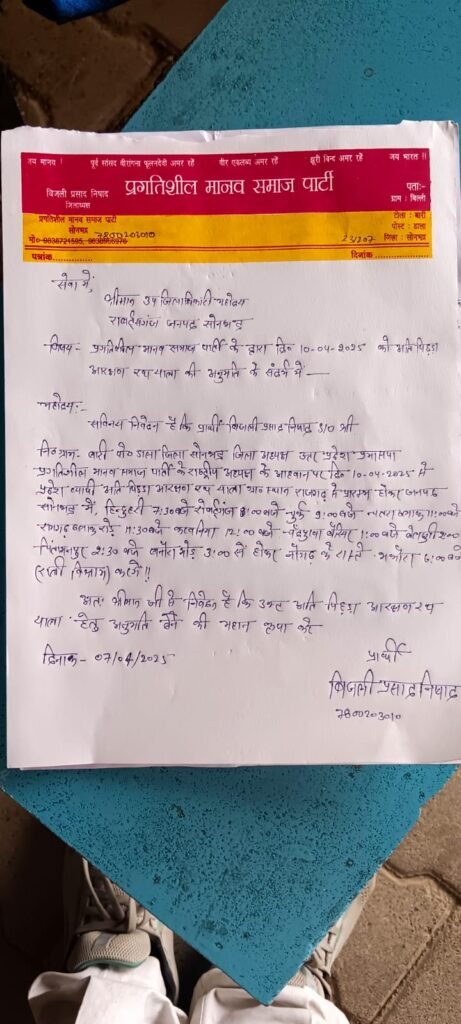 जय मानव ! पूर्व सांसद वीरांगना फूलनदेवी अमर रहें वीर एकलव्य अमर रहें झूरी बिन्द अमर रहें जय भारत !!
बिजली प्रसाद निषाद
जिलाध्यक्ष
प्रगतिशील मानव समाज पार्टी
पता:-
ग्राम : बिल्ली
प्रगतिशील मानव समाज पार्टी
सोनभद्र
7800203010
मो०-9838721595, 9838966976
टोला : बारी
पोस्ट : डाला
जिला : सोनभद्र
पत्रांक
दिनांक
सेवा में,
श्रीमान उप जिलाधिकारी महोदय
राबर्ट्सगंज जनपद सोनभद्र
विषय - प्रगतिशील मानव समाज पार्टी के द्वारा दि० 10-04-2025 को अति पिछड़ा
आरक्षण रथ यात्रा की अनुमति के संदर्भ में —
महोदय:-
सविनय निवेदन है कि प्रार्थी बिजली प्रसाद निषाद S/O श्री
नि० ग्राम- बारी पो० डाला जिला सोनभद्र जिला अध्यक्ष उत्तर प्रदेश
प्रगतिशील मानव समाज पार्टी के राष्ट्रीय अध्यक्ष के आहवान पर दि० 10-04-2025 में
प्रदेश व्यापी अति पिछड़ा आरक्षण रथ यात्रा स्थान राजगढ़ से प्रारम्भ होकर जनपद
सोनभद्र में, हिन्दुहारी 7:30 बजे 8:00 बजे 9:00 बजे 11:00 बजे
11:30 बजे 12:00 बजे 1:00 बजे 2:00
2:30 बजे मोड़ 3:00 से होकर के रास्ते 6:00 बजे
(रात्री विश्राम) करेंगे!!
अतः श्रीमान जी से निवेदन है कि उक्त अति पिछड़ा आरक्षण रथ
यात्रा हेतु अनुमति देने की महान कृपा करें
दिनांक- 07/04/2025
प्रार्थी
बिजली प्रसाद निषाद
7800203010